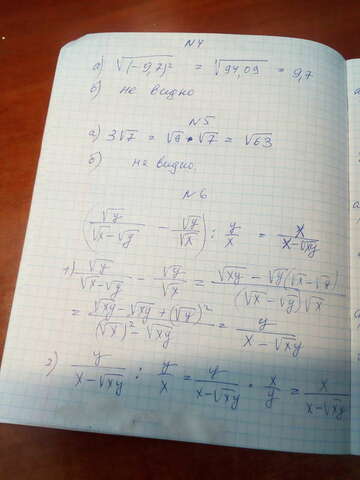 N4
а) √(-9,7)² = √94,09 = 9,7
б) не видно
N5
а) 3√7 = √9 • √7 = √63
б) не видно.
N6
(√y/(√x-√y) - √y/√x) : y/x = x/(x-√xy)
1) √y/(√x-√y) - √y/√x = (√xy - √y(√x-√y))/((√x-√y)√x)
= (√xy - √xy + (√y)²)/((√x)² - √xy) = y/(x-√xy)
2) y/(x-√xy) : y/x = y/(x-√xy) • x/y = x/(x-√xy)